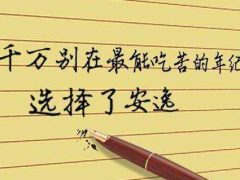 千万别在最能吃苦的年纪
选择了安逸